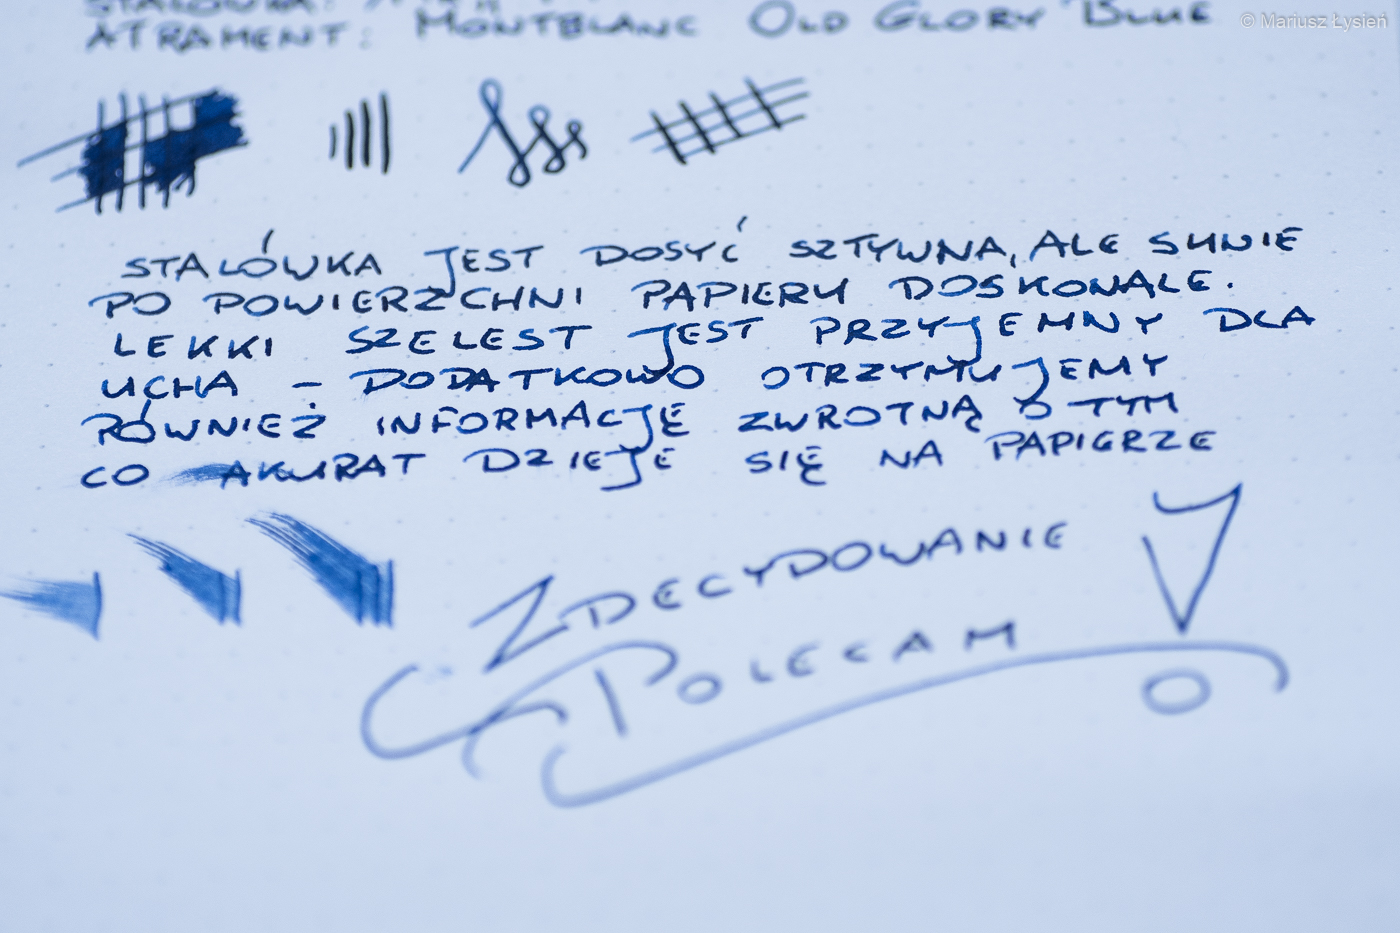 STALÓWKA:
ATRAMENT: MONTBLANC OLD GLORY BLUE
© Mariusz Łysień
STALÓWKA JEST DOSYĆ SZTYWNA, ALE SUNIE
PO POWIERZCHNI PAPIERU DOSKONALE.
LEKKI SZELEST JEST PRZYJEMNY DLA
UCHA – DODATKOWO OTRZYMUJEMY
RÓWNIEŻ INFORMACJĘ ZWROTNĄ O TYM
CO AKURAT DZIEJE SIĘ NA PAPIERZE
ZDECYDOWANIE
POLECAM!